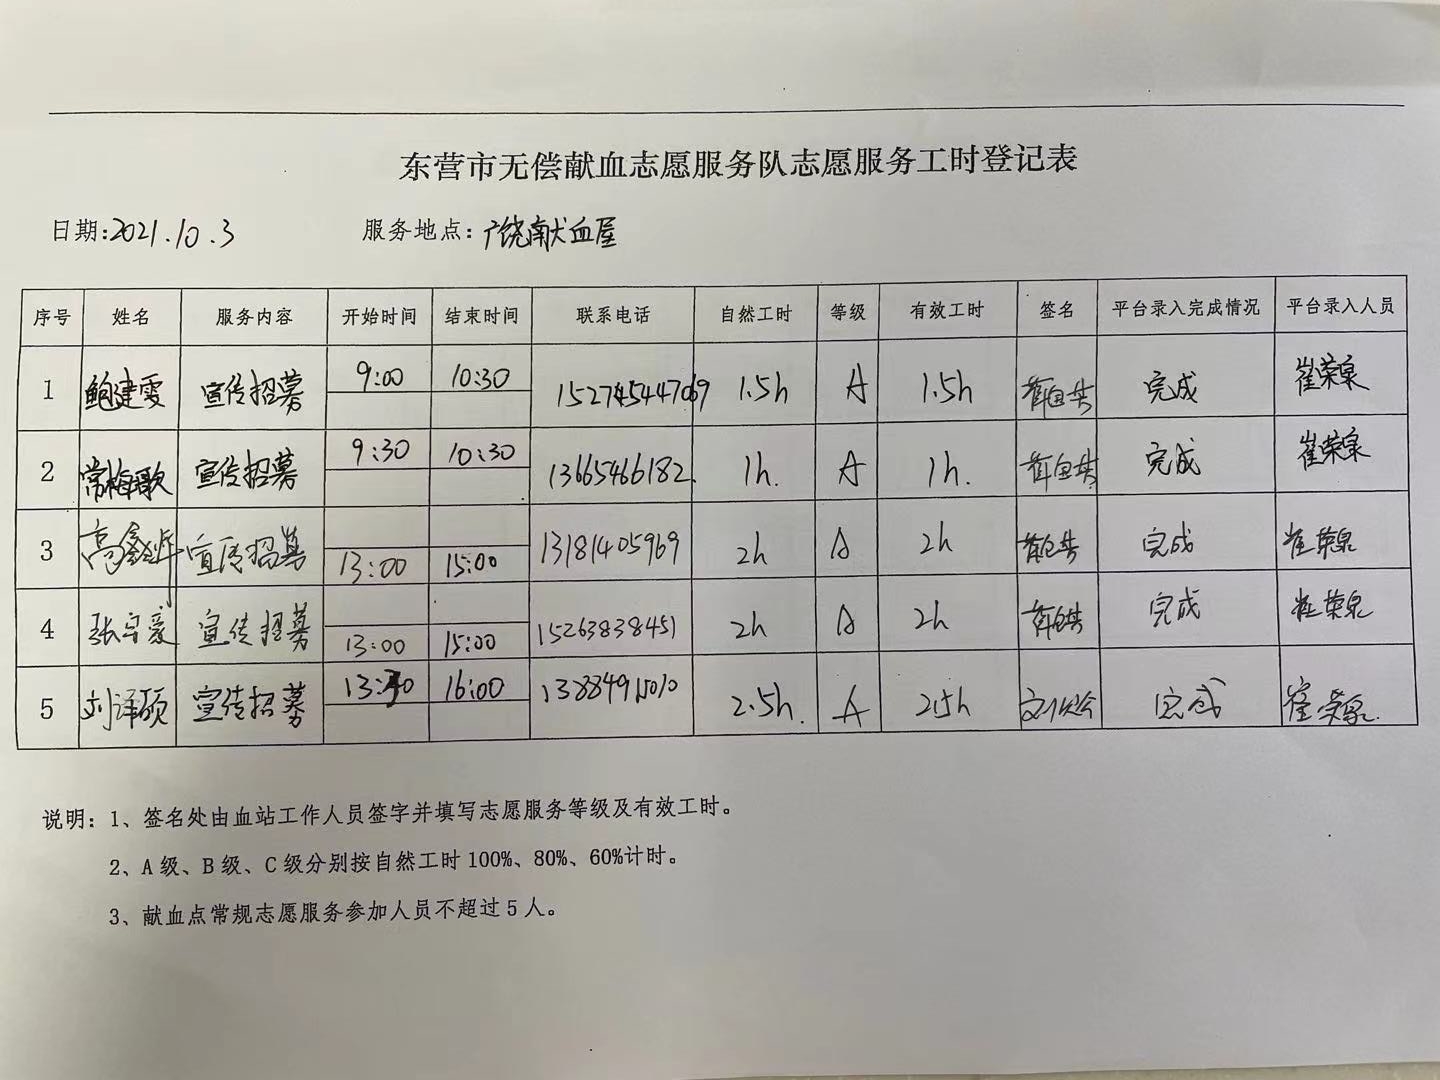 东营市无偿献血志愿服务队志愿服务工时登记表
日期:2021.10.3 服务地点:广饶献血屋
序号 姓名 服务内容 开始时间 结束时间 联系电话 自然工时 等级 有效工时 签名 平台录入完成情况 平台录入人员
1 鲍建雯 宣传招募 9:00 10:30 1.5h A 1.5h 完成 崔荣泉
2 常梅歌 宣传招募 9:30 10:30 13665466182. 1h. A 1h. 完成 崔荣泉
3 宣传招募 13:00 15:00 13181405969 2h A 2h 完成 崔荣泉
4 张守爱 宣传招募 13:00 15:00 15263838451 2h A 2h 完成 崔荣泉
5 刘泽硕 宣传招募 16:00 13884915010 2.5h. A 2.5h 完成 崔荣泉.
说明:1、签名处由血站工作人员签字并填写志愿服务等级及有效工时。
2、A级、B级、C级分别按自然工时100%、80%、60%计时。
3、献血点常规志愿服务参加人员不超过5人。